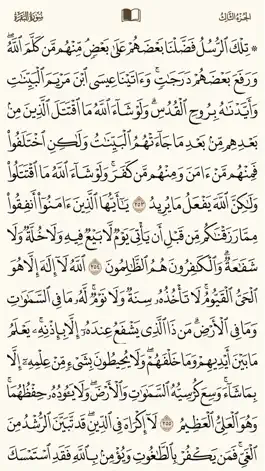 الجزء الثالث
سورة البقرة
۞ تِلْكَ ٱلرُّسُلُ فَضَّلْنَا بَعْضَهُمْ عَلَىٰ بَعْضٍ مِّنْهُم مَّن كَلَّمَ ٱللَّهُ
وَرَفَعَ بَعْضَهُمْ دَرَجَٰتٍ وَءَاتَيْنَا عِيسَى ٱبْنَ مَرْيَمَ ٱلْبَيِّنَٰتِ
وَأَيَّدْنَٰهُ بِرُوحِ ٱلْقُدُسِ وَلَوْ شَآءَ ٱللَّهُ مَا ٱقْتَتَلَ ٱلَّذِينَ مِنۢ
بَعْدِهِم مِّنۢ بَعْدِ مَا جَآءَتْهُمُ ٱلْبَيِّنَٰتُ وَلَٰكِنِ ٱخْتَلَفُوا۟
فَمِنْهُم مَّنْ ءَامَنَ وَمِنْهُم مَّن كَفَرَ وَلَوْ شَآءَ ٱللَّهُ مَا ٱقْتَتَلُوا۟
وَلَٰكِنَّ ٱللَّهَ يَفْعَلُ مَا يُرِيدُ ٢٥٣ يَٰٓأَيُّهَا ٱلَّذِينَ ءَامَنُوٓا۟ أَنفِقُوا۟
مِمَّا رَزَقْنَٰكُم مِّن قَبْلِ أَن يَأْتِىَ يَوْمٌ لَّا بَيْعٌ فِيهِ وَلَا خُلَّةٌ وَلَا
شَفَٰعَةٌ وَٱلْكَٰفِرُونَ هُمُ ٱلظَّٰلِمُونَ ٢٥٤ ٱللَّهُ لَآ إِلَٰهَ إِلَّا هُوَ
ٱلْحَىُّ ٱلْقَيُّومُ لَا تَأْخُذُهُۥ سِنَةٌ وَلَا نَوْمٌ لَّهُۥ مَا فِى ٱلسَّمَٰوَٰتِ
وَمَا فِى ٱلْأَرْضِ مَن ذَا ٱلَّذِى يَشْفَعُ عِندَهُۥٓ إِلَّا بِإِذْنِهِۦ يَعْلَمُ
مَا بَيْنَ أَيْدِيهِمْ وَمَا خَلْفَهُمْ وَلَا يُحِيطُونَ بِشَىْءٍ مِّنْ عِلْمِهِۦٓ إِلَّا
بِمَا شَآءَ وَسِعَ كُرْسِيُّهُ ٱلسَّمَٰوَٰتِ وَٱلْأَرْضَ وَلَا يَـُٔودُهُۥ حِفْظُهُمَا
وَهُوَ ٱلْعَلِىُّ ٱلْعَظِيمُ ٢٥٥ لَآ إِكْرَاهَ فِى ٱلدِّينِ قَد تَّبَيَّنَ ٱلرُّشْدُ مِنَ
ٱلْغَىِّ فَمَن يَكْفُرْ بِٱلطَّٰغُوتِ وَيُؤْمِنۢ بِٱللَّهِ فَقَدِ ٱسْتَمْسَكَ